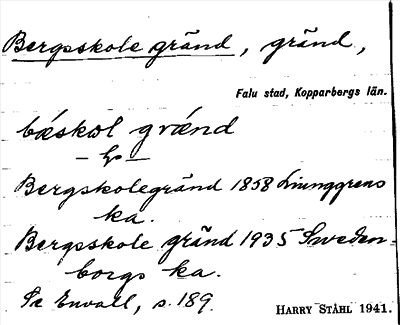 Bergsskole gränd, gränd,
Falu stad, Kopparbergs län.
bǽskol grǽnd
Bergskolegränd 1858 Ljunggrens
ka.
Bergsskole gränd 1935 Sweden-
borgs ka.
Se Envall, s. 189.
HARRY STÅHL 1941.